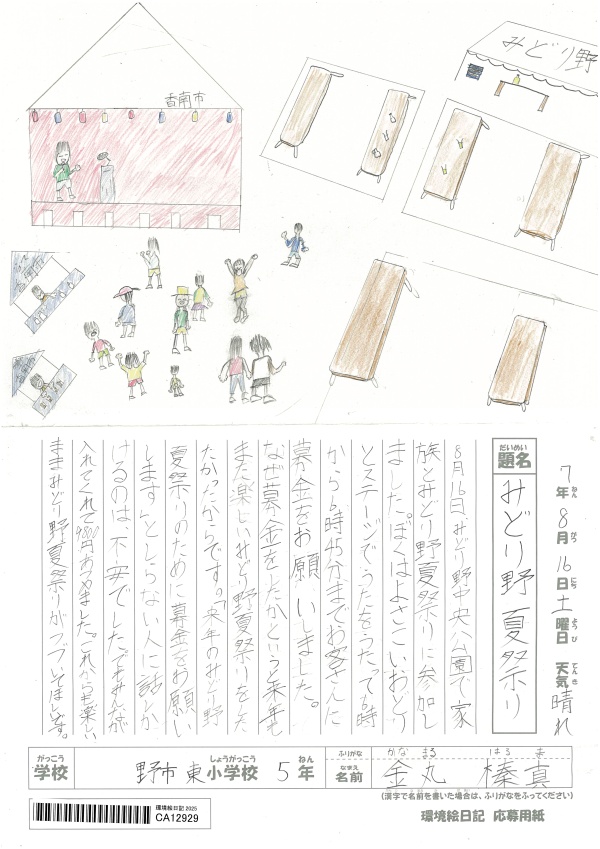 香南市
みどり野
7年 8月 16日 土曜日 天気 晴れ
ねん がつ にち ようび てんき
だいめい
題名
みどり野夏祭り
8月16日、みどり野中央公園で家
族とみどり野夏祭りに参加し
ました。ぼくはよさこいおどり
とステージでうたをうたって6時
から6時45分までお客さんに
募金をお願いしました。
なぜ募金をしたかというと来年も
また楽しいみどり野夏祭りを
たかったからです。「来年のみどり野
夏祭りのために募金をお願い
します」としらない人に話しか
けるのは、不安でした。でもみんなが
入れてくれて
円あつめました。これからも楽しい
ままみどり野夏祭りがつづいてほしいです。
がっこう
学校
野市東
しょうがっこう
小学校
5
ねん
年
ふりがな
かな まる はる ま
なまえ
名前
金丸 榛真
(漢字で名前を書いた場合は、ふりがなをふってください)
環境絵日記 2025
CA12929
環境絵日記 応募用紙